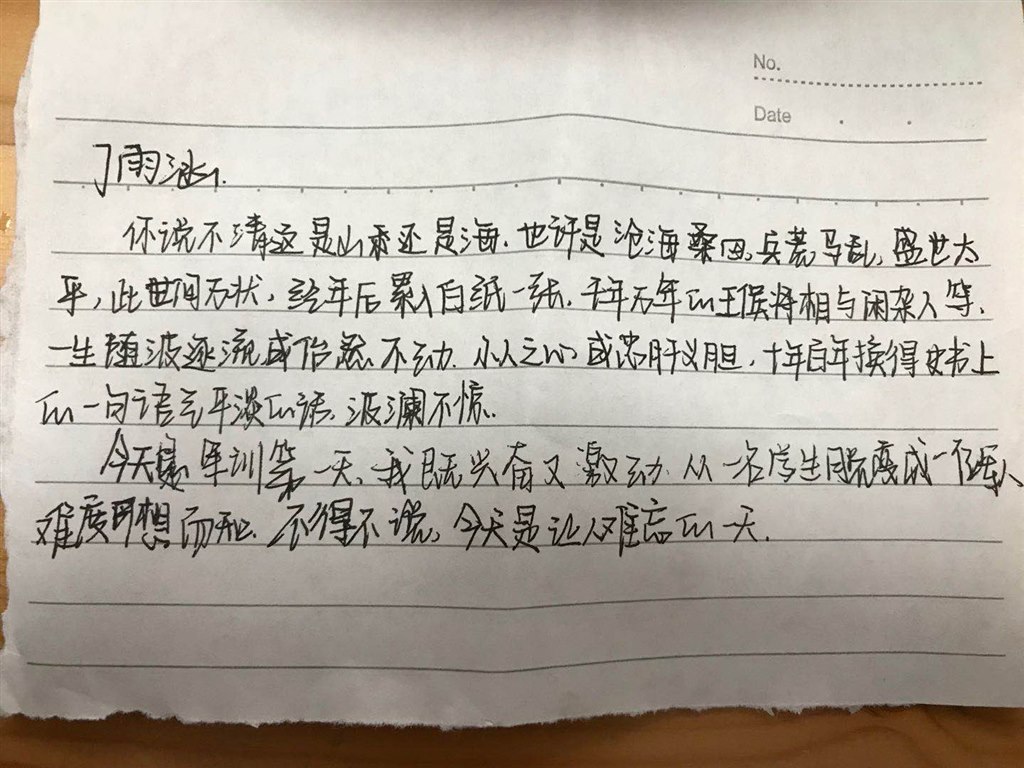 No.
Date
丁雨涵.
你说不清这是山水还是海.也许是沧海桑田,兵荒马乱,盛世太
平,此世间万状,经年后累入白纸一张.千年万年的王侯将相与闲杂人等.
一生随波逐流或怡然不动.小人之心或忠肝义胆,十年百年换得史书上
的一句语言平淡的话.波澜不惊.
今天是军训第一天,我既兴奋又激动.从一名学生蜕变成一名军人
难度可想而知.不得不说,今天是让人难忘的一天.